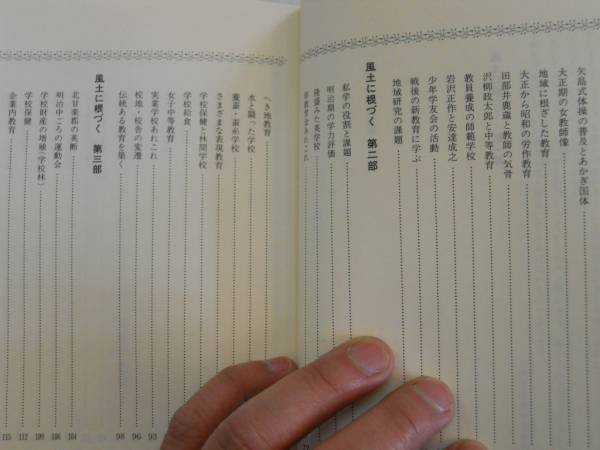 矢島式体操の普及とあかぎ国体
大正期の女教師像
地域に根ざした教育
大正から昭和の労作教育
田部井鹿蔵と教師の気骨
沢柳政太郎と中等教育
教員養成の師範学校
岩沢正作と安達成之
少年学友会の活動
戦後の新教育に学ぶ
地域研究の課題
風土に根づく 第二部
私学の役割と課題
明治期の学力評価
隆盛みた英学校
へき地教育
水と闘った学校
養蚕・蚕糸学校
さまざまな表現教育
学校保健と林間学校
学校給食
女子中等教育
実業学校あれこれ 93
校地・校舎の変遷 96
伝統ある教育を築く 98
風土に根づく 第三部
北甘楽郡の英断 104
明治中ごろの運動会 106
学校財産の増殖(学校林) 109
学校保健 112
企業内教育 115